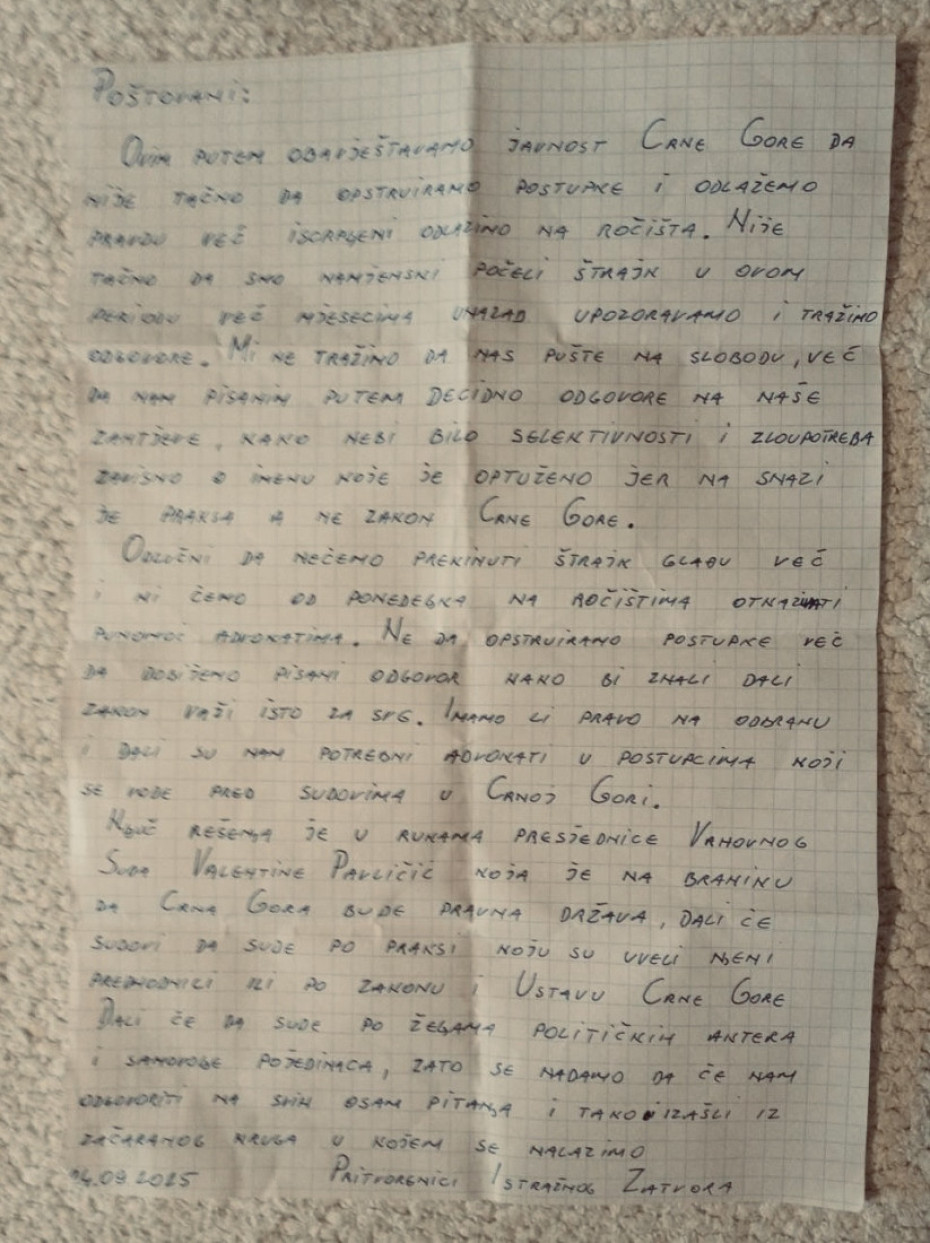 POŠTOVANI:
OVIM PUTEM OBAVJEŠTAVAMO JAVNOST CRNE GORE DA
NIJE TAČNO DA OPSTRUIRAMO POSTUPKE I ODLAŽEMO
PRAVDU VEČ ISCRPLJENI ODLAZIMO NA ROČIŠTA. NIJE
TAČNO DA SMO NAMJENSKI POČELI ŠTRAJK U OVOM
PERIODU VEČ MJESECIMA UNAZAD UPOZORAVAMO I TRAŽIMO
ODGOVORE. MI NE TRAŽIMO DA NAS PUŠTE NA SLOBODU, VEČ
DA NAM PISANIM PUTEM DECIDNO ODGOVORE NA NAŠE
ZAHTJEVE, KAKO NEBI BILO SELEKTIVNOSTI I ZLOUPOTREBA
ZAVISNO O IMENU KOJE JE OPTUŽENO JER NA SNAZI
JE PRAKSA A NE ZAKON CRNE GORE.
ODLUČNI DA NEČEMO PREKINUTI ŠTRAJK GLAĐU VEČ
I MI ČEMO OD PONEDELJKA NA ROČIŠTIMA OTKAZIVATI
PUNOMOČ ADVOKATIMA. NE DA OPSTRUIRAMO POSTUPKE VEČ
DA DOBIJEMO PISANI ODGOVOR KAKO BI ZNALI DALI
ZAKON VAŽI ISTO ZA SVE. IMAMO LI PRAVO NA ODBRANU
I DALI SU NAM POTREBNI ADVOKATI U POSTUPCIMA KOJI
SE VODE PRED SUDOVIMA U CRNOJ GORI.
KLJUČ REŠENJA JE U RUKAMA PRESJEDNICE VRHOVNOG
SUDA VALENTINE PAVLIČIČ KOJA JE NA BRANIKU
DA CRNA GORA BUDE PRAVNA DRŽAVA, DALI ČE
SUDOVI DA SUDE PO PRAKSI KOJU SU UVELI NJENI
PREDHODNICI ILI PO ZAKONU I USTAVU CRNE GORE
DALI ČE DA SUDE PO ŽELJAMA POLITIČKIH AKTERA
I SAMOVOLJE POJEDINACA, ZATO SE NADAMO DA ČE NAM
ODGOVORITI NA SVIH OSAM PITANJA I TAKO IZAŠLI IZ
ZAČARANOG KRUGA U KOJEM SE NALAZIMO
14.09.2025 PRITVORENICI ISTRAŽNOG ZATVORA